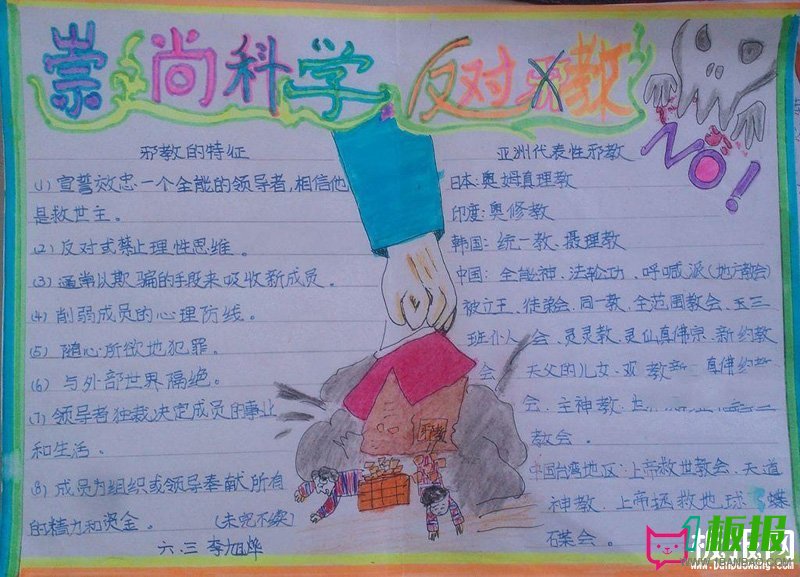 崇尚科学 反对邪教
NO!
邪教的特征
(1) 宣誓效忠一个全能的领导者,相信他
是救世主。
(2) 反对或禁止理性思维。
(3) 通常以欺骗的手段来吸收新成员。
(4) 削弱成员的心理防线。
(5) 随心所欲地犯罪。
(6) 与外部世界隔绝。
(7) 领导者独裁决定成员的事业
和生活。
(8) 成员为组织或领导奉献所有
的精力和资金。 (未完不续)
六.三 李旭烨
亚洲代表性邪教
日本:奥姆真理教
印度:奥修教
韩国:统一教、摄理教
中国:全能神、法轮功、呼喊派(地方教会)
被立王、徒弟会、同一教、全范围教会、三三
班仆人 会、灵灵教、灵仙真佛宗、新约教
会 天父的儿女、亚 教 真佛约教
会、主神教、
教会。
中国台湾地区:上帝救世教会、天道
神教、上帝拯救地球 蝶
碟会。
邪教
板报网